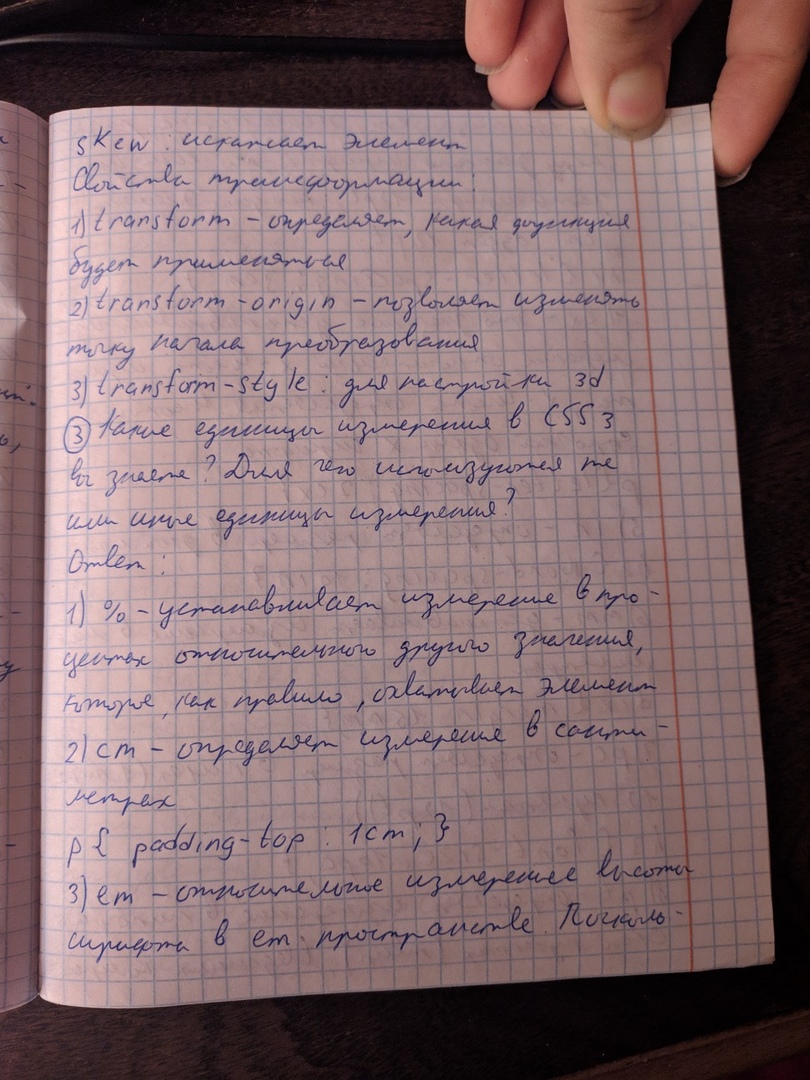 skew: искажает элемент
Свойства трансформации:
1) transform – определяет, какая функция
будет применяться
2) transform-origin – позволяет изменять
точку начала преобразования
3) transform-style: для настройки 3d
③ Какие единицы измерения в CSS3
вы знаете? Для чего используются те
или иные единицы измерения?
Ответ:
1) % – устанавливает измерение в про-
центах относительного другого значения,
которое, как правило, охватывает элемент
2) cm – определяет измерение в санти-
метрах
p { padding-top: 1cm; }
3) em – относительное измерение высоты
шрифта в em пространстве. Посколь-